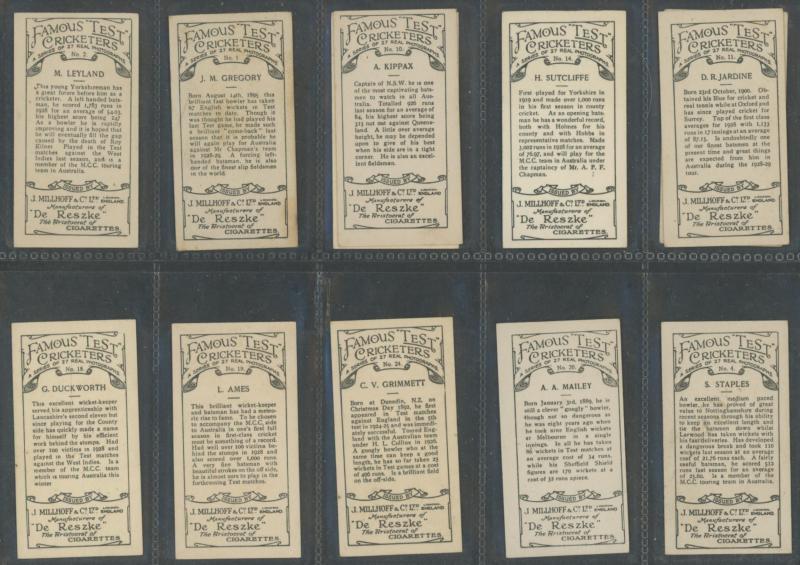 FAMOUS "TEST"
CRICKETERS
A SERIES OF 27 REAL PHOTOGRAPHS
No. 2.
M. LEYLAND
This young Yorkshireman has
a great future before him as a
cricketer. A left handed bats-
man, he scored 1,783 runs in
1928 for an average of 54.03
his highest score being 247
As a bowler he is rapidly
improving and it is hoped that
he will eventually fill the gap
caused by the death of Roy
Kilner Played in the Test
matches against the West
Indies last season, and is a
member of the M.C.C. touring
team in Australia.
ISSUED BY
J. MILLHOFF & Co. LTD LONDON, ENGLAND.
Manufacturers of
"De Reszke"
The Aristocrat of
CIGARETTES
FAMOUS "TEST"
CRICKETERS
A SERIES OF 27 REAL PHOTOGRAPHS
No. 1.
J. M. GREGORY
Born August 14th, 1895 this
brilliant fast bowler has taken
67 English wickets in Test
matches to date. Though it
was thought he had played his
last Test game, he made such
a brilliant "come-back" last
season that it is probable he
will again play for Australia
against Mr Chapman's team
in 1928-29. A forcing left-
handed batsman, he is also
one of the finest slip fieldsmen
in the world
ISSUED BY
J. MILLHOFF & Co. LTD LONDON, ENGLAND.
Manufacturers of
"De Reszke"
The Aristocrat of
CIGARETTES
FAMOUS "TEST"
CRICKETERS
A SERIES OF 27 REAL PHOTOGRAPHS
No. 10.
A. KIPPAX
Captain of N.S.W. he is one
of the most captivating bats-
men to watch in all Aus-
tralia. Totalled 926 runs
last season for an average of
84, his highest score being
315 not out against Queens-
land. A little over average
height, he may be depended
upon to give of his best
when his side are in a tight
corner. He is also an excel-
lent fieldsman.
ISSUED BY
J. MILLHOFF & Co. LTD LONDON, ENGLAND.
Manufacturers of
"De Reszke"
The Aristocrat of
CIGARETTES
FAMOUS "TEST"
CRICKETERS
A SERIES OF 27 REAL PHOTOGRAPHS
No. 14.
H. SUTCLIFFE
First played for Yorkshire in
1919 and made over 1,000 runs
in his first season in county
cricket. As an opening bats-
man he has a wonderful record,
both with Holmes for his
county and with Hobbs in
representative matches. Made
3,002 runs in 1928 for an average
of 76.97, and will play for the
M.C.C. team in Australia under
the captaincy of Mr. A. P. F.
Chapman.
ISSUED BY
J. MILLHOFF & Co. LTD LONDON, ENGLAND.
Manufacturers of
"De Reszke"
The Aristocrat of
CIGARETTES
FAMOUS "TEST"
CRICKETERS
A SERIES OF 27 REAL PHOTOGRAPHS
No. 11.
D. R. JARDINE
Born 23rd October, 1900. Ob-
tained his Blue for cricket and
real tennis whilst at Oxford and
has since played cricket for
Surrey. Top of the first class
averages for 1928 with 1,133
runs in 17 innings at an average
of 87.15. Is undoubtedly one
of our finest batsmen at the
present time and great things
are expected from him in
Australia during the 1928-29
tour.
ISSUED BY
J. MILLHOFF & Co. LTD LONDON, ENGLAND.
Manufacturers of
"De Reszke"
The Aristocrat of
CIGARETTES
FAMOUS "TEST"
CRICKETERS
A SERIES OF 27 REAL PHOTOGRAPHS
No. 18.
G. DUCKWORTH
This excellent wicket-keeper
served his apprenticeship with
Lancashire's second eleven but
since playing for the County
side has quickly made a name
for himself by his efficient
work behind the stumps. Had
over 100 victims in 1928 and
played in the Test Matches
against the West Indies. Is a
member of the M.C.C. team
which is touring Australia this
winter
ISSUED BY
J. MILLHOFF & Co. LTD LONDON, ENGLAND.
Manufacturers of
"De Reszke"
The Aristocrat of
CIGARETTES
FAMOUS "TEST"
CRICKETERS
A SERIES OF 27 REAL PHOTOGRAPHS
No. 19.
L. AMES
This brilliant wicket-keeper
and batsman has had a mete-
oric rise to fame. To be chosen
to accompany the M.C.C. side
to Australia in one's first full
season in first-class cricket
must be something of a record.
Had well over 100 victims be-
hind the stumps in 1928 and
also scored over 1,000 runs.
A very fine batsman with
beautiful strokes on the off side,
he is almost sure to play in the
forthcoming Test matches.
ISSUED BY
J. MILLHOFF & Co. LTD LONDON, ENGLAND.
Manufacturers of
"De Reszke"
The Aristocrat of
CIGARETTES
FAMOUS "TEST"
CRICKETERS
A SERIES OF 27 REAL PHOTOGRAPHS
No. 24.
C. V. GRIMMETT
Born at Dunedin, N.Z. on
Christmas Day 1892, he first
appeared in Test matches
against England in the 5th
test in 1924-25 and was immedi-
ately successful. Toured Eng-
land with the Australian team
under H. L. Collins in 1926.
A googly bowler who at the
same time can keep a good
length, he has so far taken 25
wickets in Test games at a cost
of 496 runs. Is a brilliant field
on the off-side.
ISSUED BY
J. MILLHOFF & Co. LTD LONDON, ENGLAND.
Manufacturers of
"De Reszke"
The Aristocrat of
CIGARETTES
FAMOUS "TEST"
CRICKETERS
A SERIES OF 27 REAL PHOTOGRAPHS
No. 20.
A. A. MAILEY
Born January 3rd, 1889, he is
still a clever "googly" bowler,
though not so dangerous as
he was eight years ago when
he took nine English wickets
at Melbourne in a single
innings. In all he has taken
86 wickets in Test matches at
an average cost of 34 runs,
while his Sheffield Shield
figures are 170 wickets at a
cost of 32 runs apiece.
ISSUED BY
J. MILLHOFF & Co. LTD LONDON, ENGLAND.
Manufacturers of
"De Reszke"
The Aristocrat of
CIGARETTES
FAMOUS "TEST"
CRICKETERS
A SERIES OF 27 REAL PHOTOGRAPHS
No. 4.
S. STAPLES
An excellent medium paced
bowler, he has proved of great
value to Nottinghamshire during
recent seasons through his ability
to keep an excellent length and
tie the batsmen down whilst
Larwood has taken wickets with
his fast deliveries. Has developed
a dangerous break and took 110
wickets last season at an average
cost of 21.75 runs each. A fairly
useful batsman, he scored 512
runs last season for an average
of 21.00. Is a member of the
M.C.C. touring team in Australia.
ISSUED BY
J. MILLHOFF & Co. LTD LONDON, ENGLAND.
Manufacturers of
"De Reszke"
The Aristocrat of
CIGARETTES